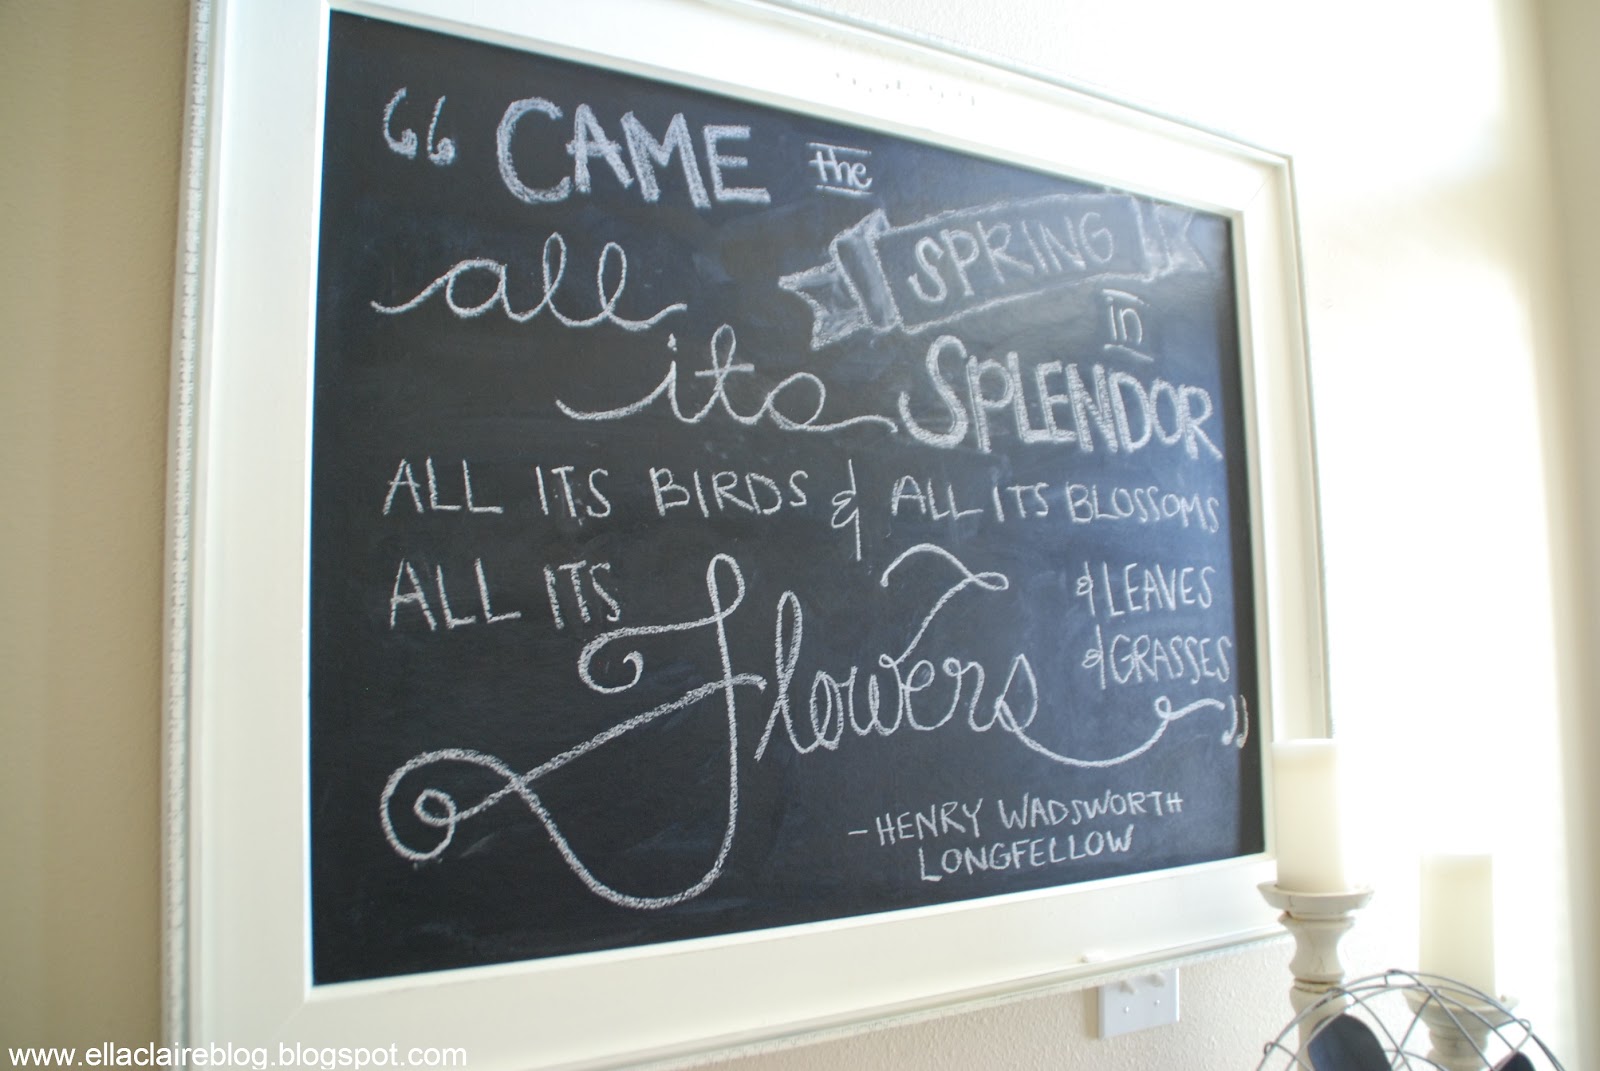 “ CAME the SPRING
all in
its SPLENDOR
ALL ITS BIRDS & ALL ITS BLOSSOMS
ALL ITS Flowers & LEAVES
& GRASSES ”
- HENRY WADSWORTH
LONGFELLOW
www.ellaclaireblog.blogspot.com